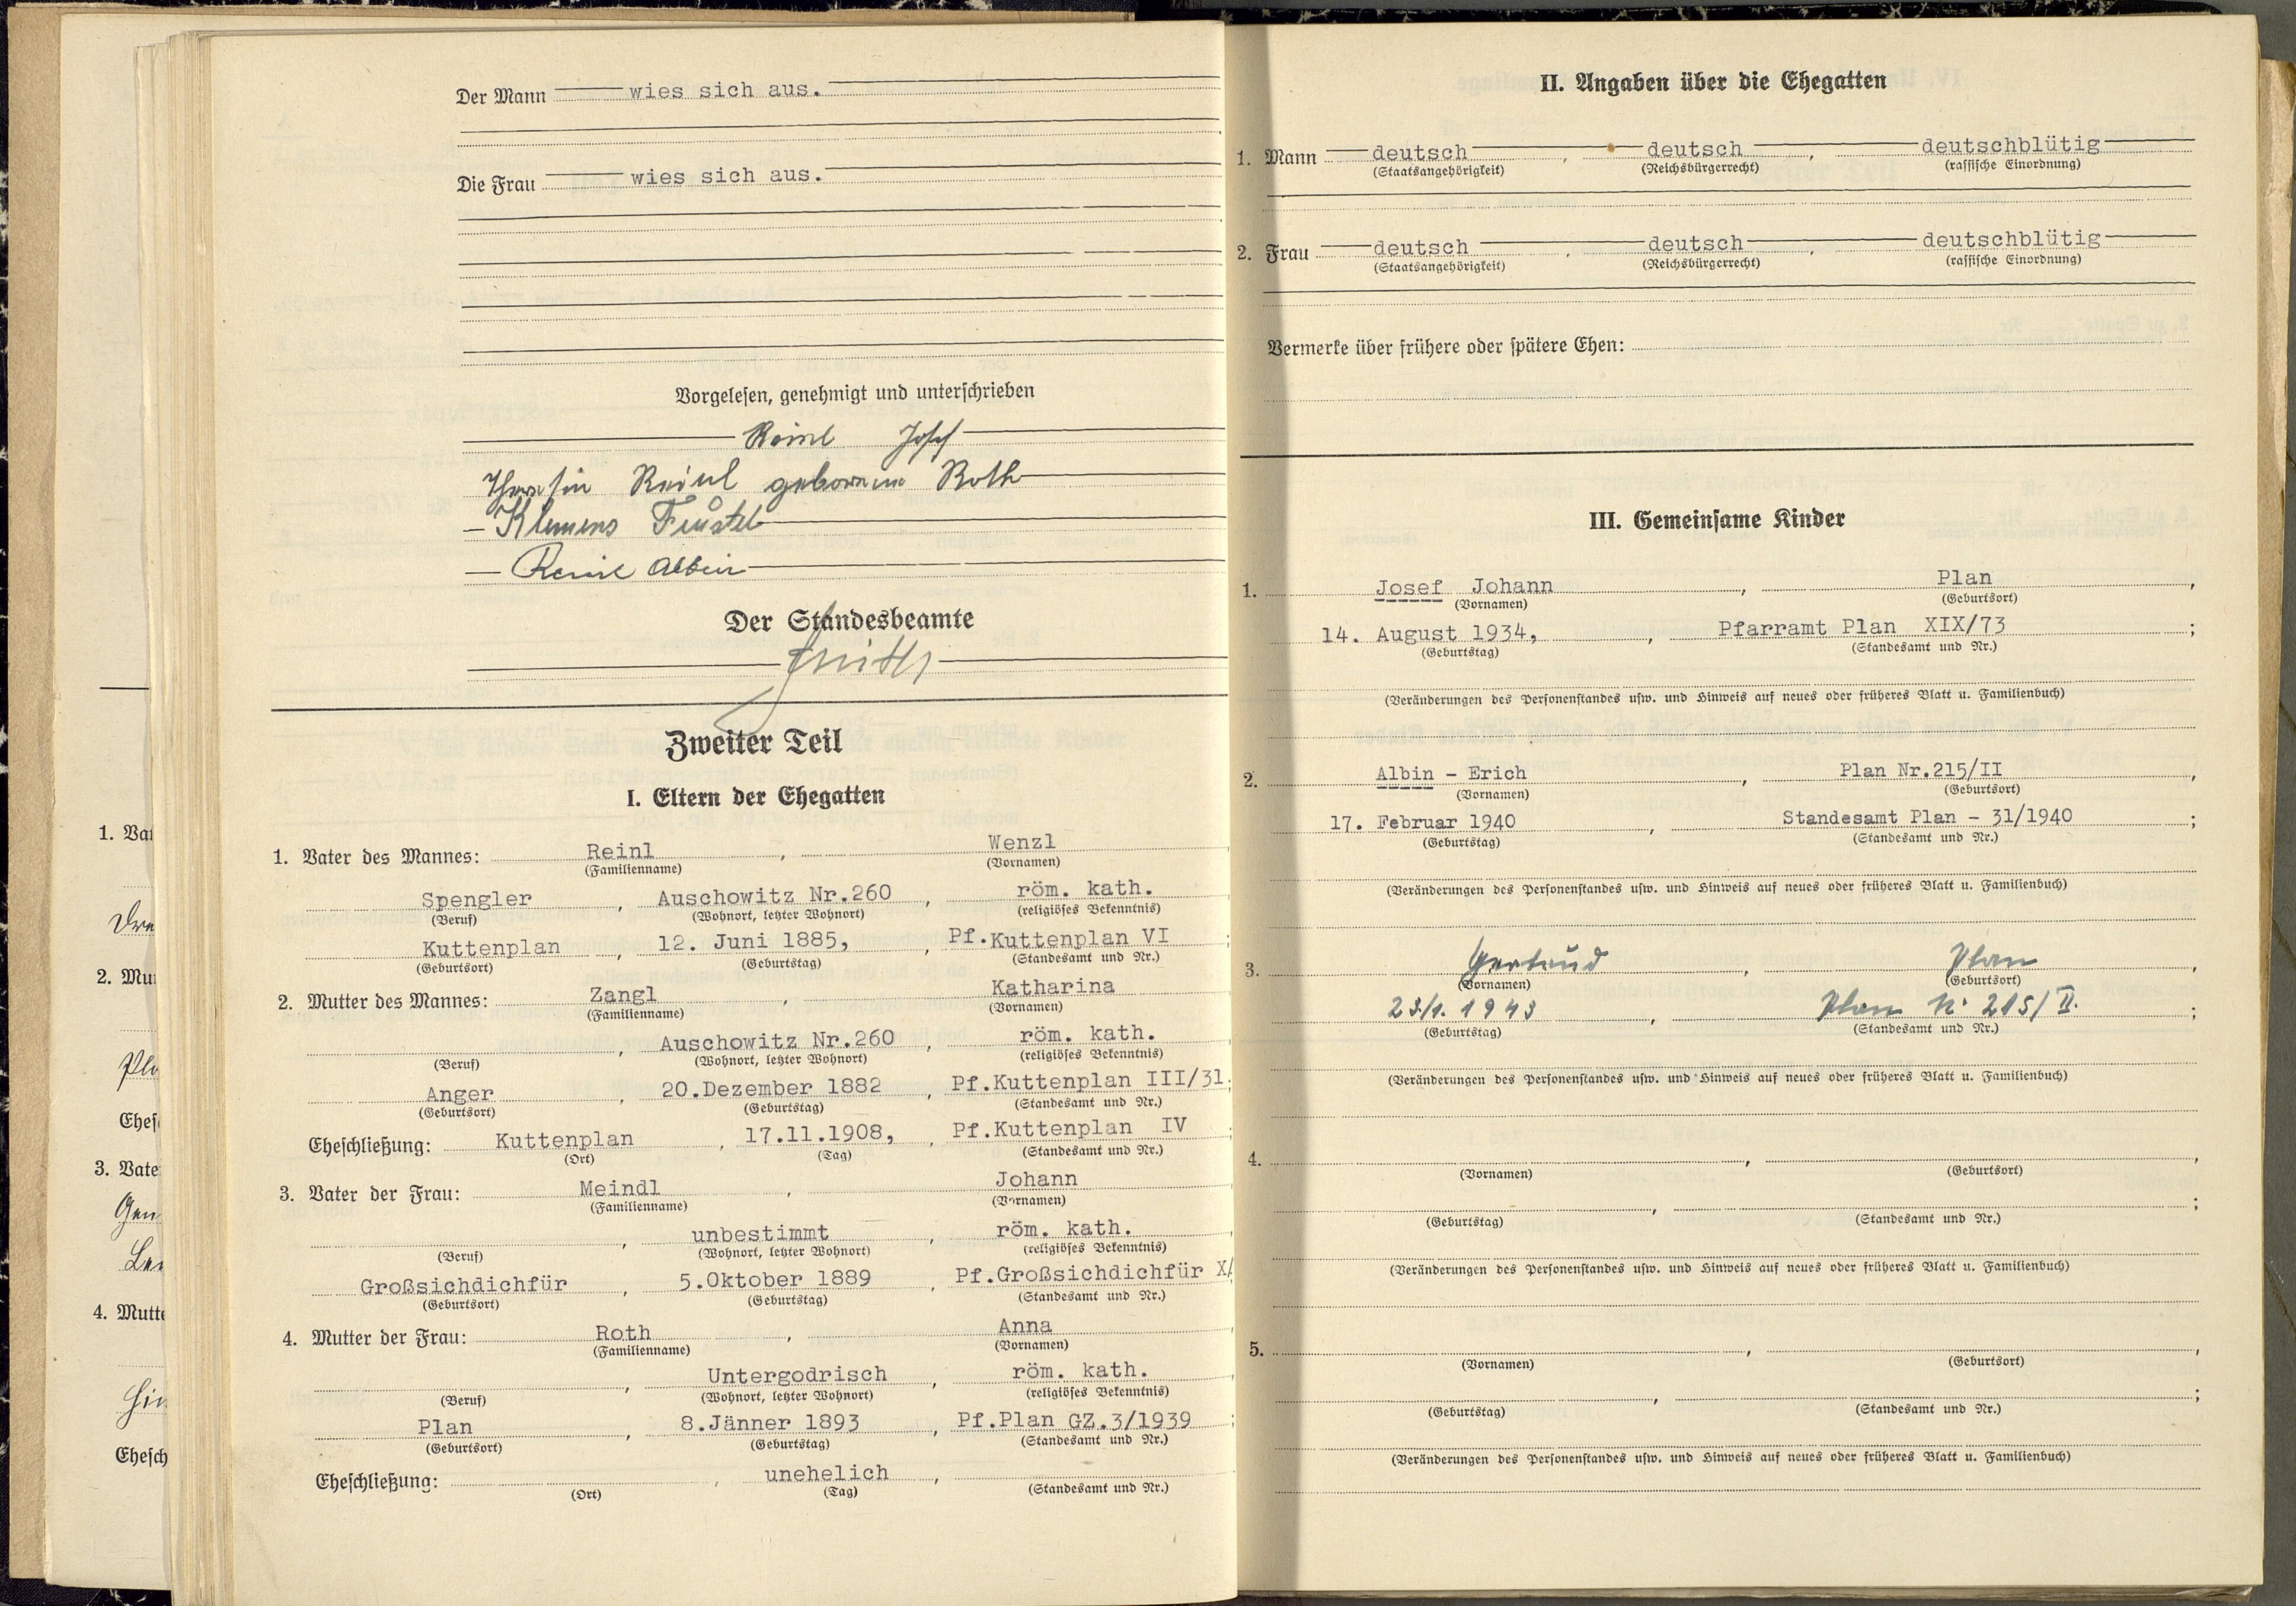 Der Mann wies sich aus.
Die Frau wies sich aus.
Vorgelesen, genehmigt und unterschrieben
Reinl Josef
Theresia Reinl geborene Roth
Klemens
Reinl Albin
Der Standesbeamte
Zweiter Teil
I. Eltern der Ehegatten
1. Vater des Mannes: Reinl, Wenzl
(Familienname) (Vornamen)
Spengler, Auschowitz Nr.260, röm. kath.
(Beruf) (Wohnort, letzter Wohnort) (religiöses Bekenntnis)
Kuttenplan, 12. Juni 1885,, Pf.Kuttenplan VI;
(Geburtsort) (Geburtstag) (Standesamt und Nr.)
2. Mutter des Mannes: Zangl, Katharina
(Familienname) (Vornamen)
, Auschowitz Nr.260, röm. kath.
(Beruf) (Wohnort, letzter Wohnort) (religiöses Bekenntnis)
Anger, 20.Dezember 1882, Pf.Kuttenplan III/31;
(Geburtsort) (Geburtstag) (Standesamt und Nr.)
Eheschließung: Kuttenplan, 17.11.1908,, Pf.Kuttenplan IV;
(Ort) (Tag) (Standesamt und Nr.)
3. Vater der Frau: Meindl, Johann
(Familienname) (Vornamen)
, unbestimmt, röm. kath.
(Beruf) (Wohnort, letzter Wohnort) (religiöses Bekenntnis)
Großsichdichfür, 5.Oktober 1889, Pf.Großsichdichfür X/
(Geburtsort) (Geburtstag) (Standesamt und Nr.)
4. Mutter der Frau: Roth, Anna
(Familienname) (Vornamen)
, Untergodrisch, röm. kath.
(Beruf) (Wohnort, letzter Wohnort) (religiöses Bekenntnis)
Plan, 8.Jänner 1893, Pf.Plan GZ.3/1939;
(Geburtsort) (Geburtstag) (Standesamt und Nr.)
Eheschließung: , unehelich,
(Ort) (Tag) (Standesamt und Nr.)
II. Angaben über die Ehegatten
1. Mann deutsch, deutsch, deutschblütig
(Staatsangehörigkeit) (Reichsbürgerrecht) (rassische Einordnung)
2. Frau deutsch, deutsch, deutschblütig
(Staatsangehörigkeit) (Reichsbürgerrecht) (rassische Einordnung)
Vermerke über frühere oder spätere Ehen:
III. Gemeinsame Kinder
1. Josef Johann, Plan,
(Vornamen) (Geburtsort)
14. August 1934,, Pfarramt Plan XIX/73;
(Geburtstag) (Standesamt und Nr.)
(Veränderungen des Personenstandes usw. und Hinweis auf neues oder früheres Blatt u. Familienbuch)
2. Albin - Erich, Plan Nr.215/II,
(Vornamen) (Geburtsort)
17. Februar 1940, Standesamt Plan - 31/1940;
(Geburtstag) (Standesamt und Nr.)
(Veränderungen des Personenstandes usw. und Hinweis auf neues oder früheres Blatt u. Familienbuch)
3. Gertaud, Plan,
(Vornamen) (Geburtsort)
23/1. 1943, Plan Nr 215/II.;
(Geburtstag) (Standesamt und Nr.)
(Veränderungen des Personenstandes usw. und Hinweis auf neues oder früheres Blatt u. Familienbuch)
4. , ,
(Vornamen) (Geburtsort)
, ;
(Geburtstag) (Standesamt und Nr.)
(Veränderungen des Personenstandes usw. und Hinweis auf neues oder früheres Blatt u. Familienbuch)
5. , ,
(Vornamen) (Geburtsort)
, ;
(Geburtstag) (Standesamt und Nr.)
(Veränderungen des Personenstandes usw. und Hinweis auf neues oder früheres Blatt u. Familienbuch)